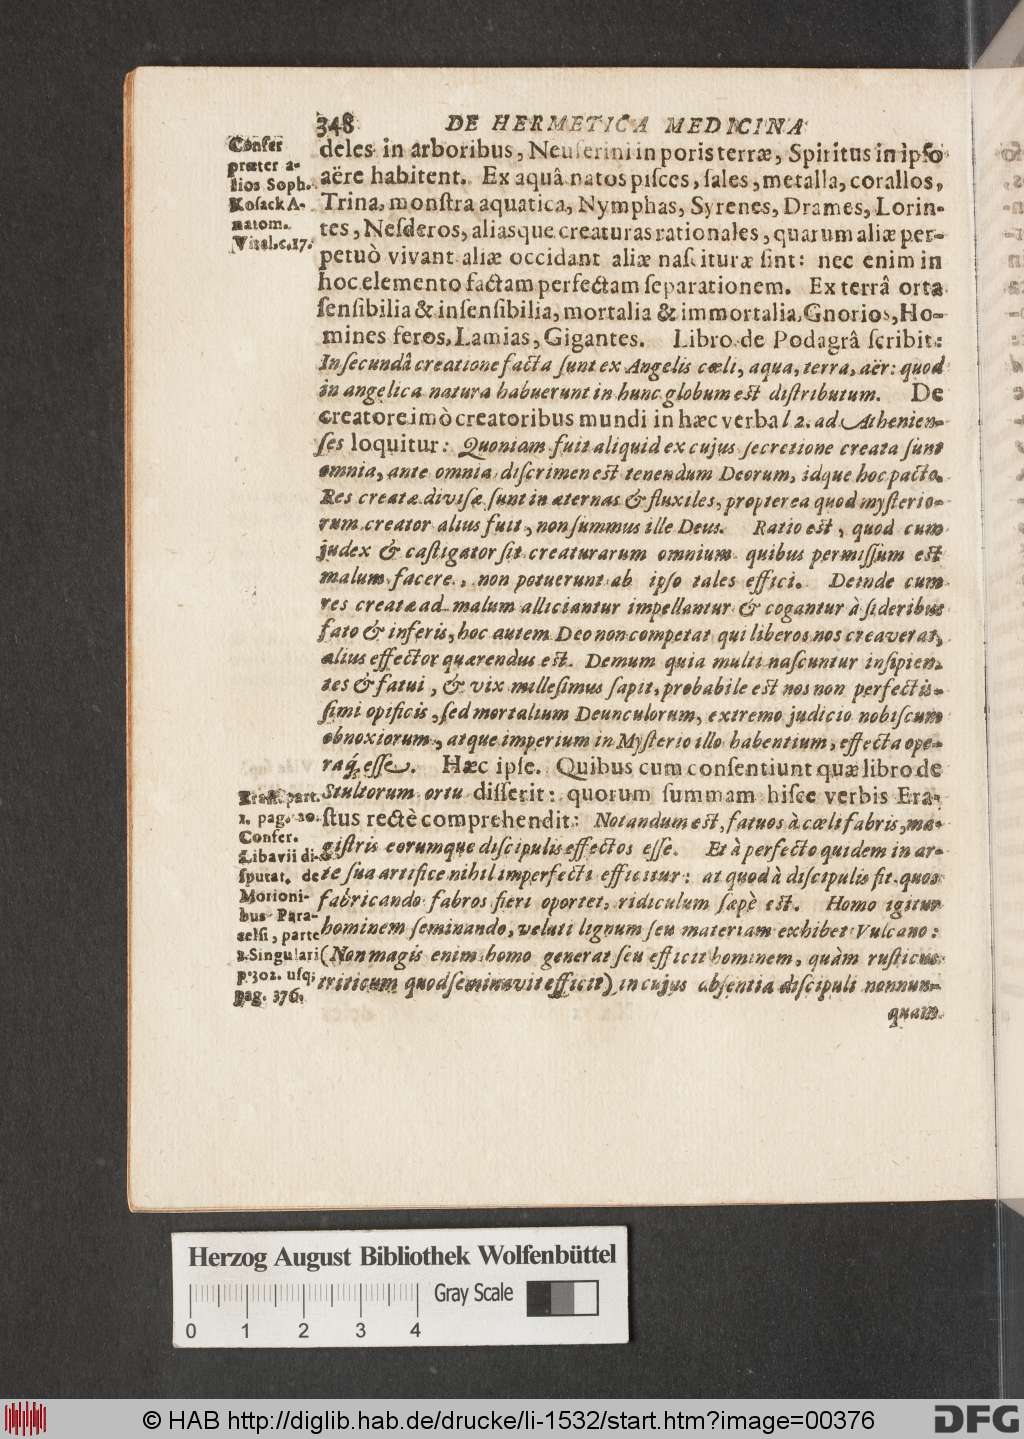 348 DE HERMETICA MEDICINA
deles in arboribus, Neuferini in poris terræ, Spiritus in ipso
aëre habitent. Ex aquâ natos pisces, sales, metalla, corallos,
Trina, monstra aquatica, Nymphas, Syrenes, Drames, Lorin-
tes, Nesderos, aliasque creaturas rationales, quarum aliæ per-
petuò vivant aliæ occidant aliæ nascituræ sint: nec enim in
hoc elemento factam perfectam separationem. Ex terrâ orta
sensibilia & insensibilia, mortalia & immortalia, Gnorios, Ho-
mines feros, Lamias, Gigantes. Libro de Podagrâ scribit:
In secundâ creatione facta sunt ex Angelis cœli, aqua, terra, aër: quod
in angelica natura habuerunt in hunc globum est distributum. De
creatore imò creatoribus mundi in hæc verba l 2. ad Athenien-
ses loquitur: Quoniam fuit aliquid ex cujus secretione creata sunt
omnia, ante omnia discrimen est tenendum Deorum, idque hoc pacto.
Res creatæ divisæ sunt in æternas & fluxiles, propterea quod mysterio-
rum creator alius fuit, non summus ille Deus. Ratio est, quod cum
judex & castigator sit creaturarum omnium quibus permissum est
malum facere, non potuerunt ab ipso tales effici. Deinde cum
res creatæ ad malum alliciantur impellantur & cogantur à sideribus
fato & inferis, hoc autem Deo non competat qui liberos nos creaverat,
alius effector quærendus est. Demum quia multi nascuntur insipien-
tes & fatui, & vix millesimus sapit, probabile est nos non perfectis-
simi opificis, sed mortalium Deunculorum, extremo judicio nobiscum
obnoxiorum, atque imperium in Mysterio illo habentium, effecta ope-
raq́; esse. Hæc ipse. Quibus cum consentiunt quæ libro de
Stultorum ortu disserit: quorum summam hisce verbis Era-
stus rectè comprehendit: Notandum est, fatuos à cœli fabris, ma-
gistris eorumque discipulis effectos esse. Et à perfecto quidem in ar-
te sua artifice nihil imperfecti efficitur: at quod à discipulis fit quos
fabricando fabros fieri oportet, ridiculum sæpè est. Homo igitur
hominem seminando, veluti lignum seu materiam exhibet Vulcano:
(Non magis enim homo generat seu efficit hominem, quàm rusticus
triticum quod seminavit efficit) in cujus absentia discipuli nonnun-
quam
Confer
præter a-
lios Soph.
Kosack A-
natom.
Vital. c. 17.
Erast. part.
1. pag. 20.
Confer.
Libavii di-
sputat. de
Morioni-
bus Para-
celsi, parte
2. Singulari
p. 302. usq;
pag. 376.
Herzog August Bibliothek Wolfenbüttel
Gray Scale
0 1 2 3 4
© HAB http://diglib.hab.de/drucke/li-1532/start.htm?image=00376
DFG